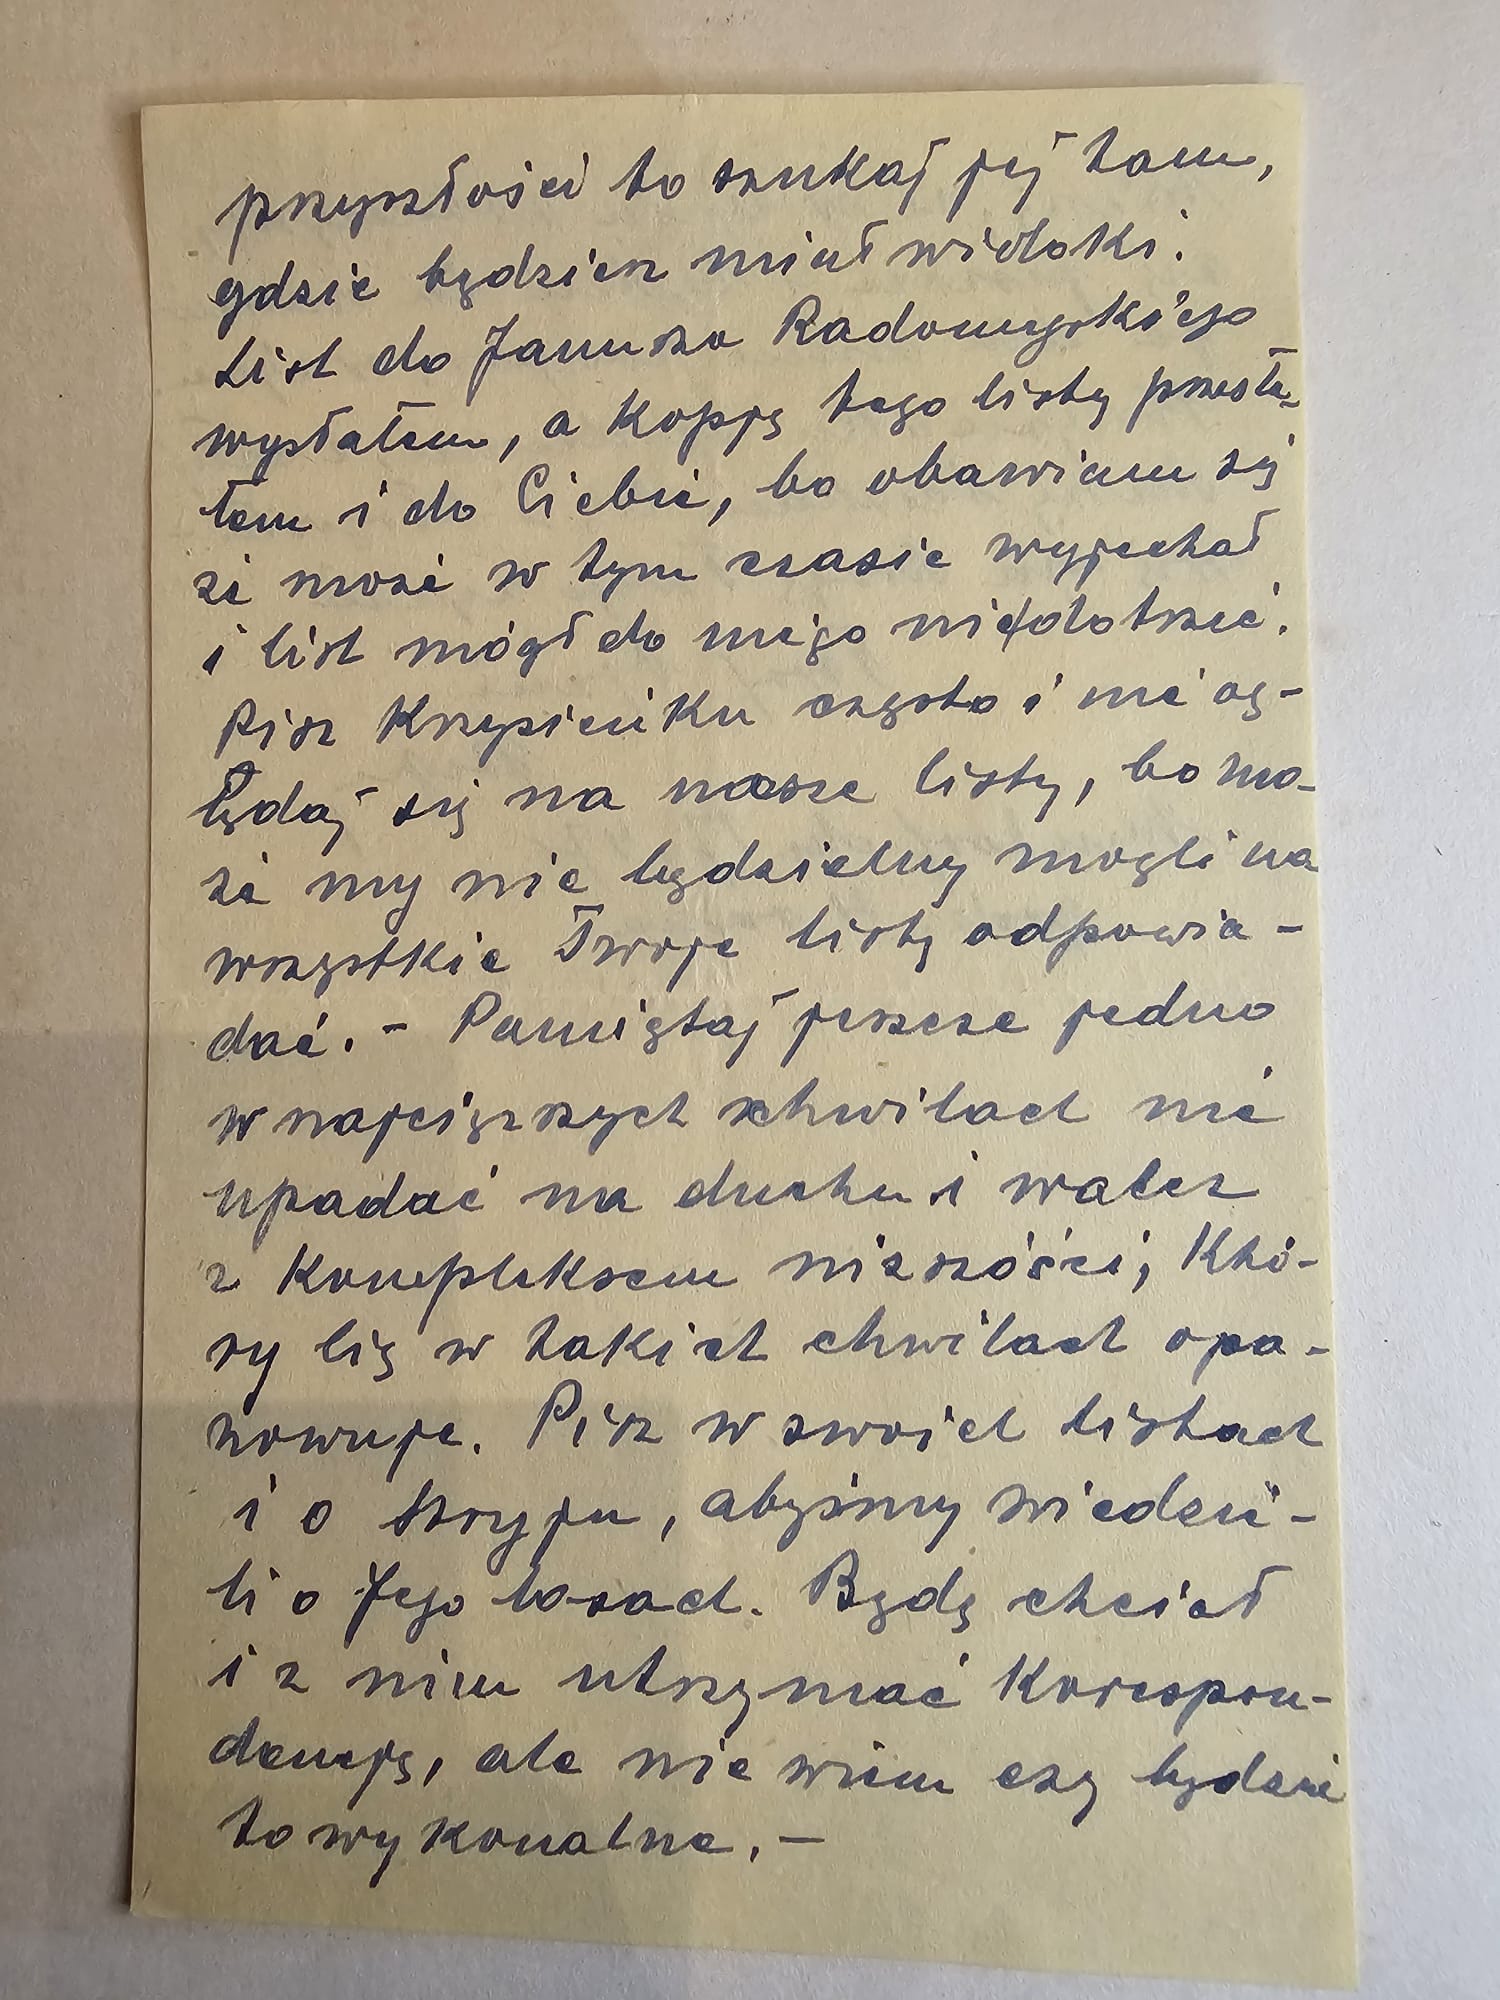 przyszłości to szukaj jej tam,
gdzie będziesz miał widoki.
List do Janusza Radomyskiego
wysłałem, a kopję tego listy przesła-
łem i do Ciebie, bo obawiam się
że może w tym czasie wyjechał
i list mógł do niego nie dotrzeć.
Pisz Krzysieńku często i nie og-
lędaj się na nasze listy, bo mo-
że my nie będzielmy mogli na
wszystkie Twoje listy odpowia-
dać. - Pamiętaj jeszcze jedno
w najcięższych chwilach nie
upadać na duchu i walcz
z kompleksem niższości, któ-
ry Cię w takich chwilach opa-
nowuje. Pisz w swoich listach
i o Stryju, abyśmy wiedzie-
li o Jego losach. Będę chciał
i z nim utrzymać korespon-
dencję, ale nie wiem czy będzie
to wykonalne. -